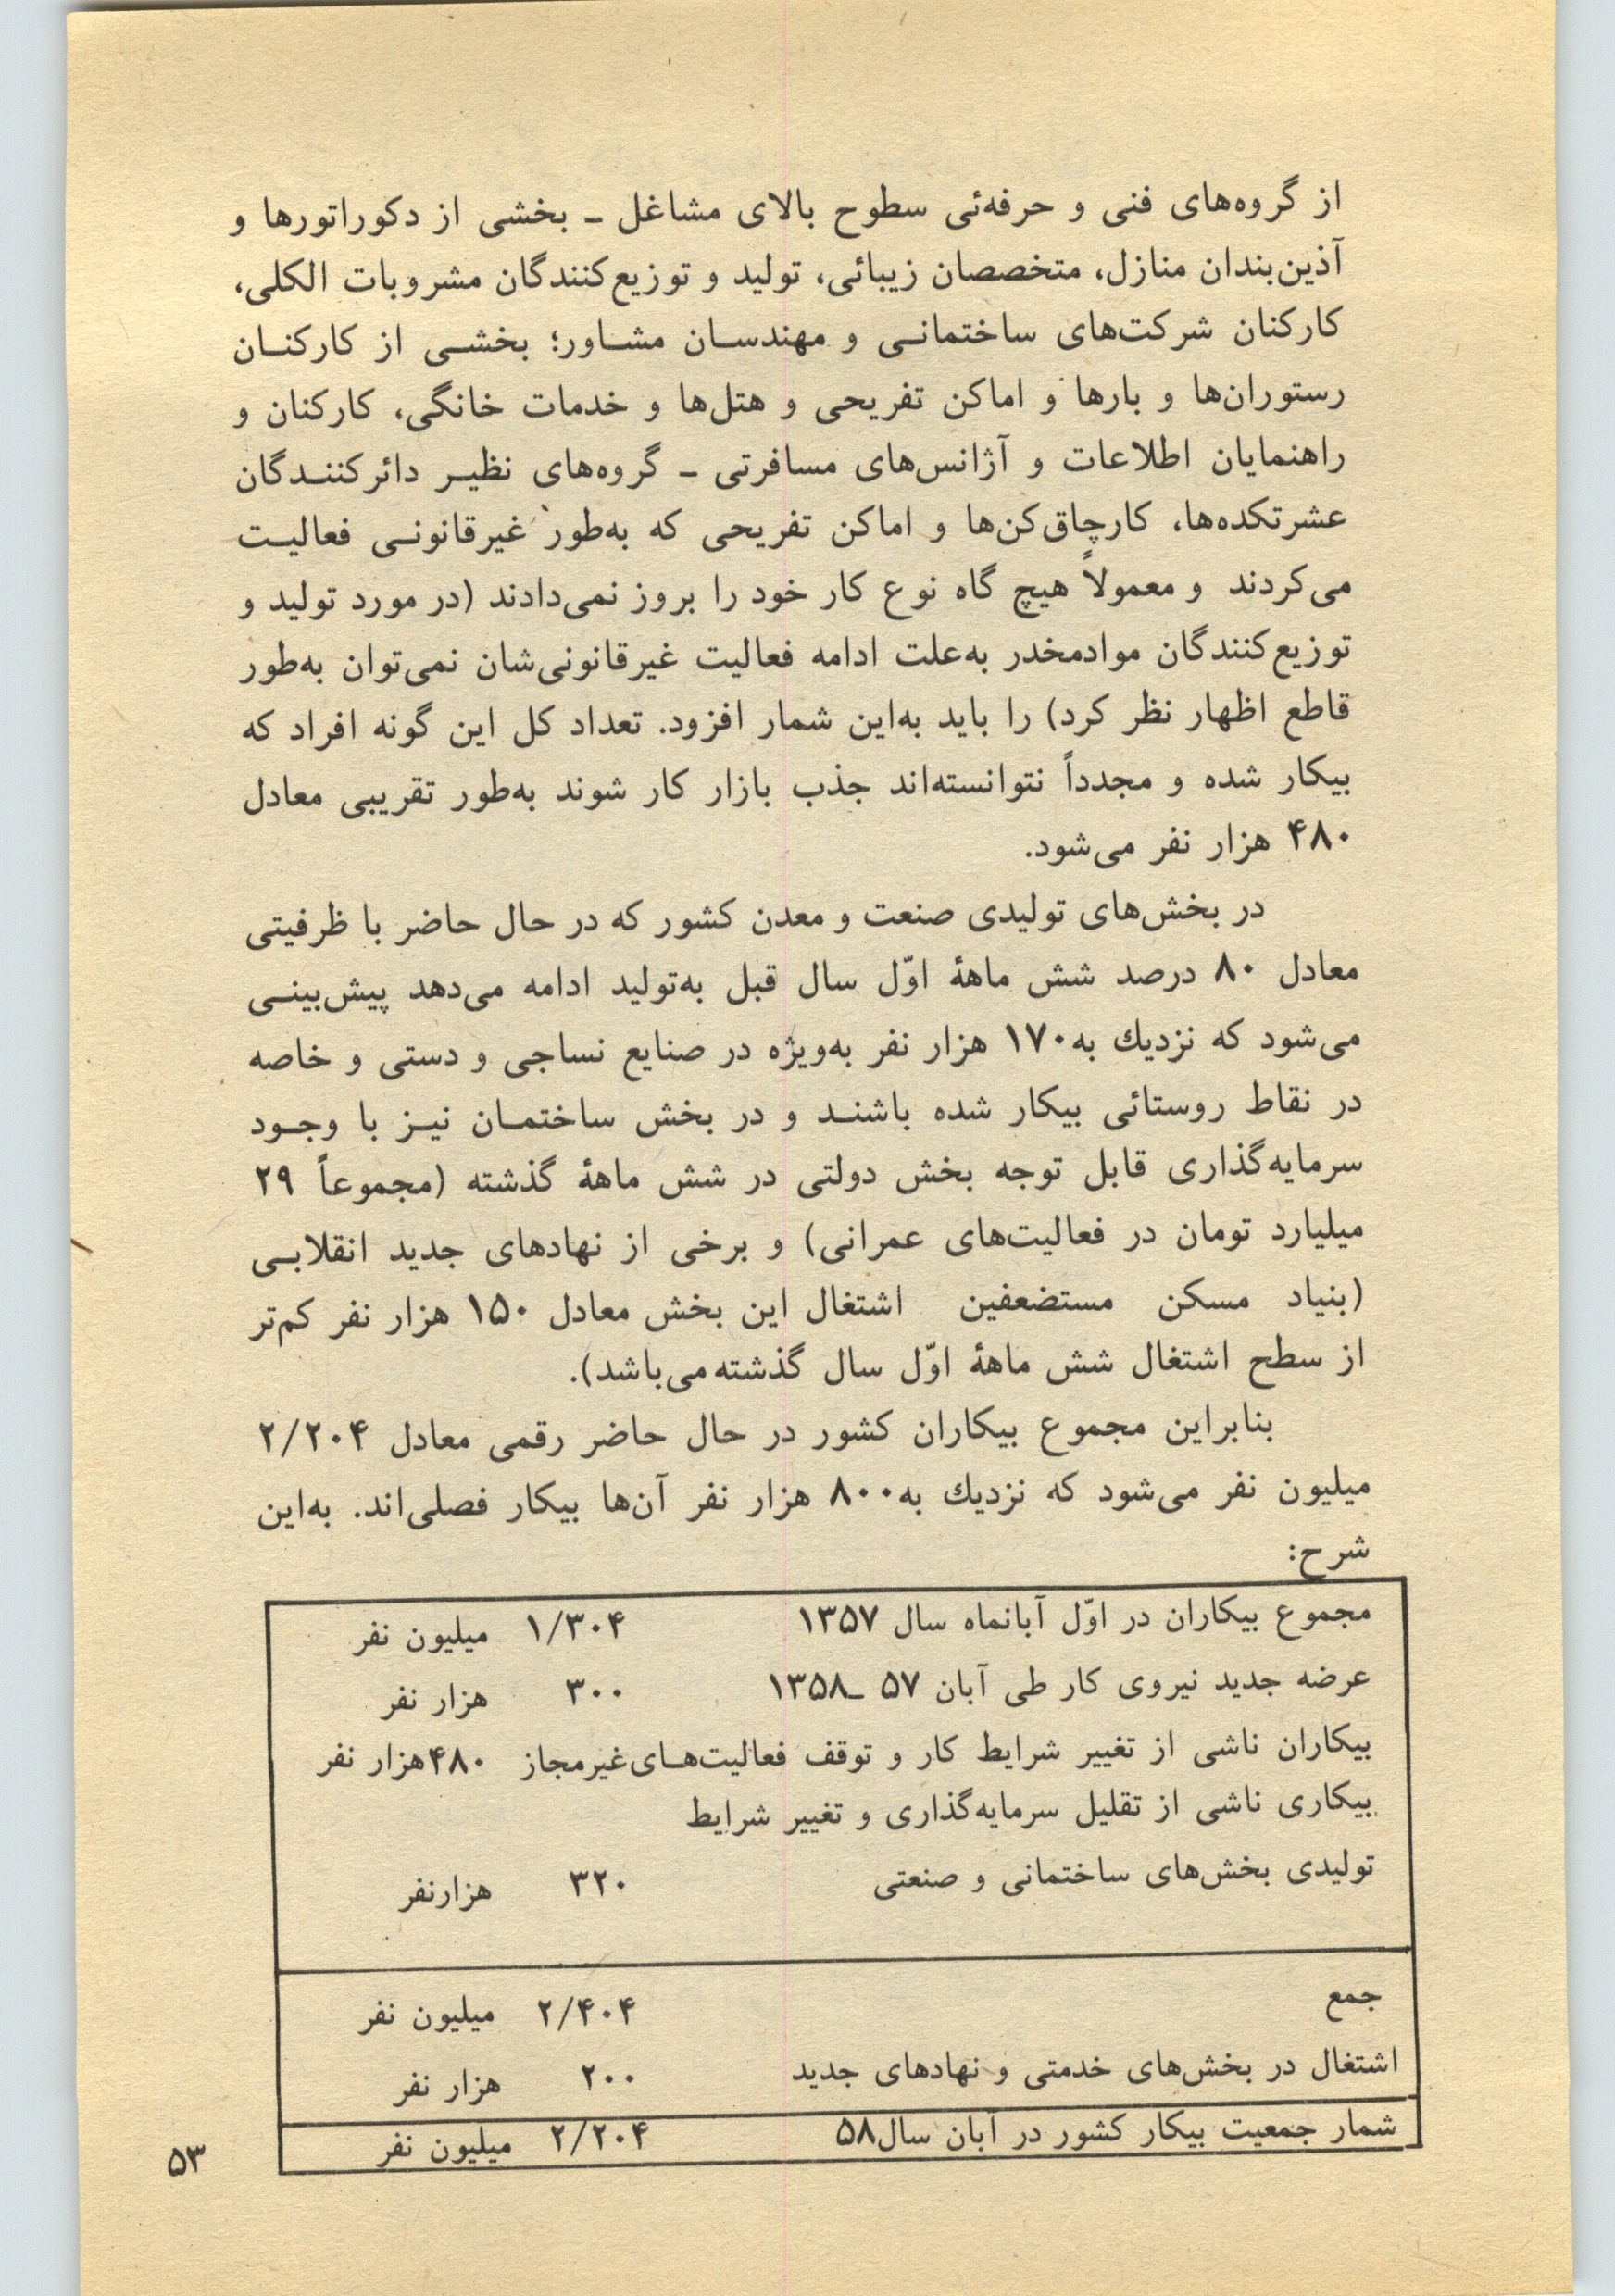 از گروه‌های فنی و حرفه‌ئی سطوح بالای مشاغل ـ بخشی از دکوراتورها و
آذین‌بندان منازل، متخصصان زیبائی، تولید و توزیع‌کنندگان مشروبات الکلی،
کارکنان شرکت‌های ساختمانی و مهندسان مشاور؛ بخشی از کارکنان
رستوران‌ها و بارها و اماکن تفریحی و هتل‌ها و خدمات خانگی، کارکنان و
راهنمایان اطلاعات و آژانس‌های مسافرتی ـ گروه‌های نظیر دائرکنندگان
عشرتکده‌ها، کارچاق‌کن‌ها و اماکن تفریحی که به‌طور غیرقانونی فعالیت
می‌کردند و معمولاً هیچ گاه نوع کار خود را بروز نمی‌دادند (در مورد تولید و
توزیع‌کنندگان موادمخدر به‌علت ادامه فعالیت غیرقانونی‌شان نمی‌توان به‌طور
قاطع اظهار نظر کرد) را باید به‌این شمار افزود. تعداد کل این گونه افراد که
بیکار شده و مجدداً نتوانسته‌اند جذب بازار کار شوند به‌طور تقریبی معادل
۴۸۰ هزار نفر می‌شود.
در بخش‌های تولیدی صنعت و معدن کشور که در حال حاضر با ظرفیتی
معادل ۸۰ درصد شش ماههٔ اوّل سال قبل به‌تولید ادامه می‌دهد پیش‌بینی
می‌شود که نزدیك به۱۷۰ هزار نفر به‌ویژه در صنایع نساجی و دستی و خاصه
در نقاط روستائی بیکار شده باشند و در بخش ساختمان نیز با وجود
سرمایه‌گذاری قابل توجه بخش دولتی در شش ماههٔ گذشته (مجموعاً ۲۹
میلیارد تومان در فعالیت‌های عمرانی) و برخی از نهادهای جدید انقلابی
(بنیاد مسکن مستضعفین اشتغال این بخش معادل ۱۵۰ هزار نفر کم‌تر
از سطح اشتغال شش ماههٔ اوّل سال گذشته می‌باشد).
بنابراین مجموع بیکاران کشور در حال حاضر رقمی معادل ۲/۲۰۴
میلیون نفر می‌شود که نزدیك به۸۰۰ هزار نفر آن‌ها بیکار فصلی‌اند. به‌این
شرح:
مجموع بیکاران در اوّل آبانماه سال ۱۳۵۷ ۱/۳۰۴ میلیون نفر
عرضه جدید نیروی کار طی آبان ۵۷ ـ۱۳۵۸ ۳۰۰ هزار نفر
بیکاران ناشی از تغییر شرایط کار و توقف فعالیت‌های‌غیرمجاز ۴۸۰هزار نفر
بیکاری ناشی از تقلیل سرمایه‌گذاری و تغییر شرایط
تولیدی بخش‌های ساختمانی و صنعتی ۳۲۰ هزارنفر
جمع ۲/۴۰۴ میلیون نفر
اشتغال در بخش‌های خدمتی و نهادهای جدید ۲۰۰ هزار نفر
شمار جمعیت بیکار کشور در آبان سال۵۸ ۲/۲۰۴ میلیون نفر
۵۳